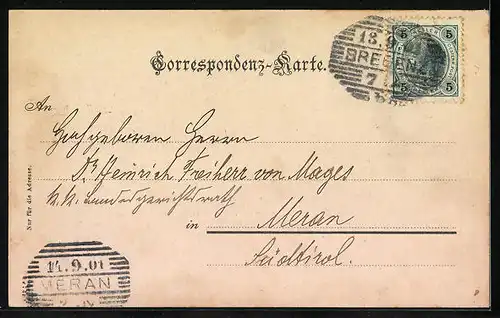 Correspondenz-Karte.
13.9
BREGEN
7
5 5
5 5
An
Hochgeboren Herrn
Dr Heinrich Freiherr von Mages
k. k. Landesgerichtsrath
in Meran
Südtirol.
Nur für die Adresse.
14.9.01
MERAN